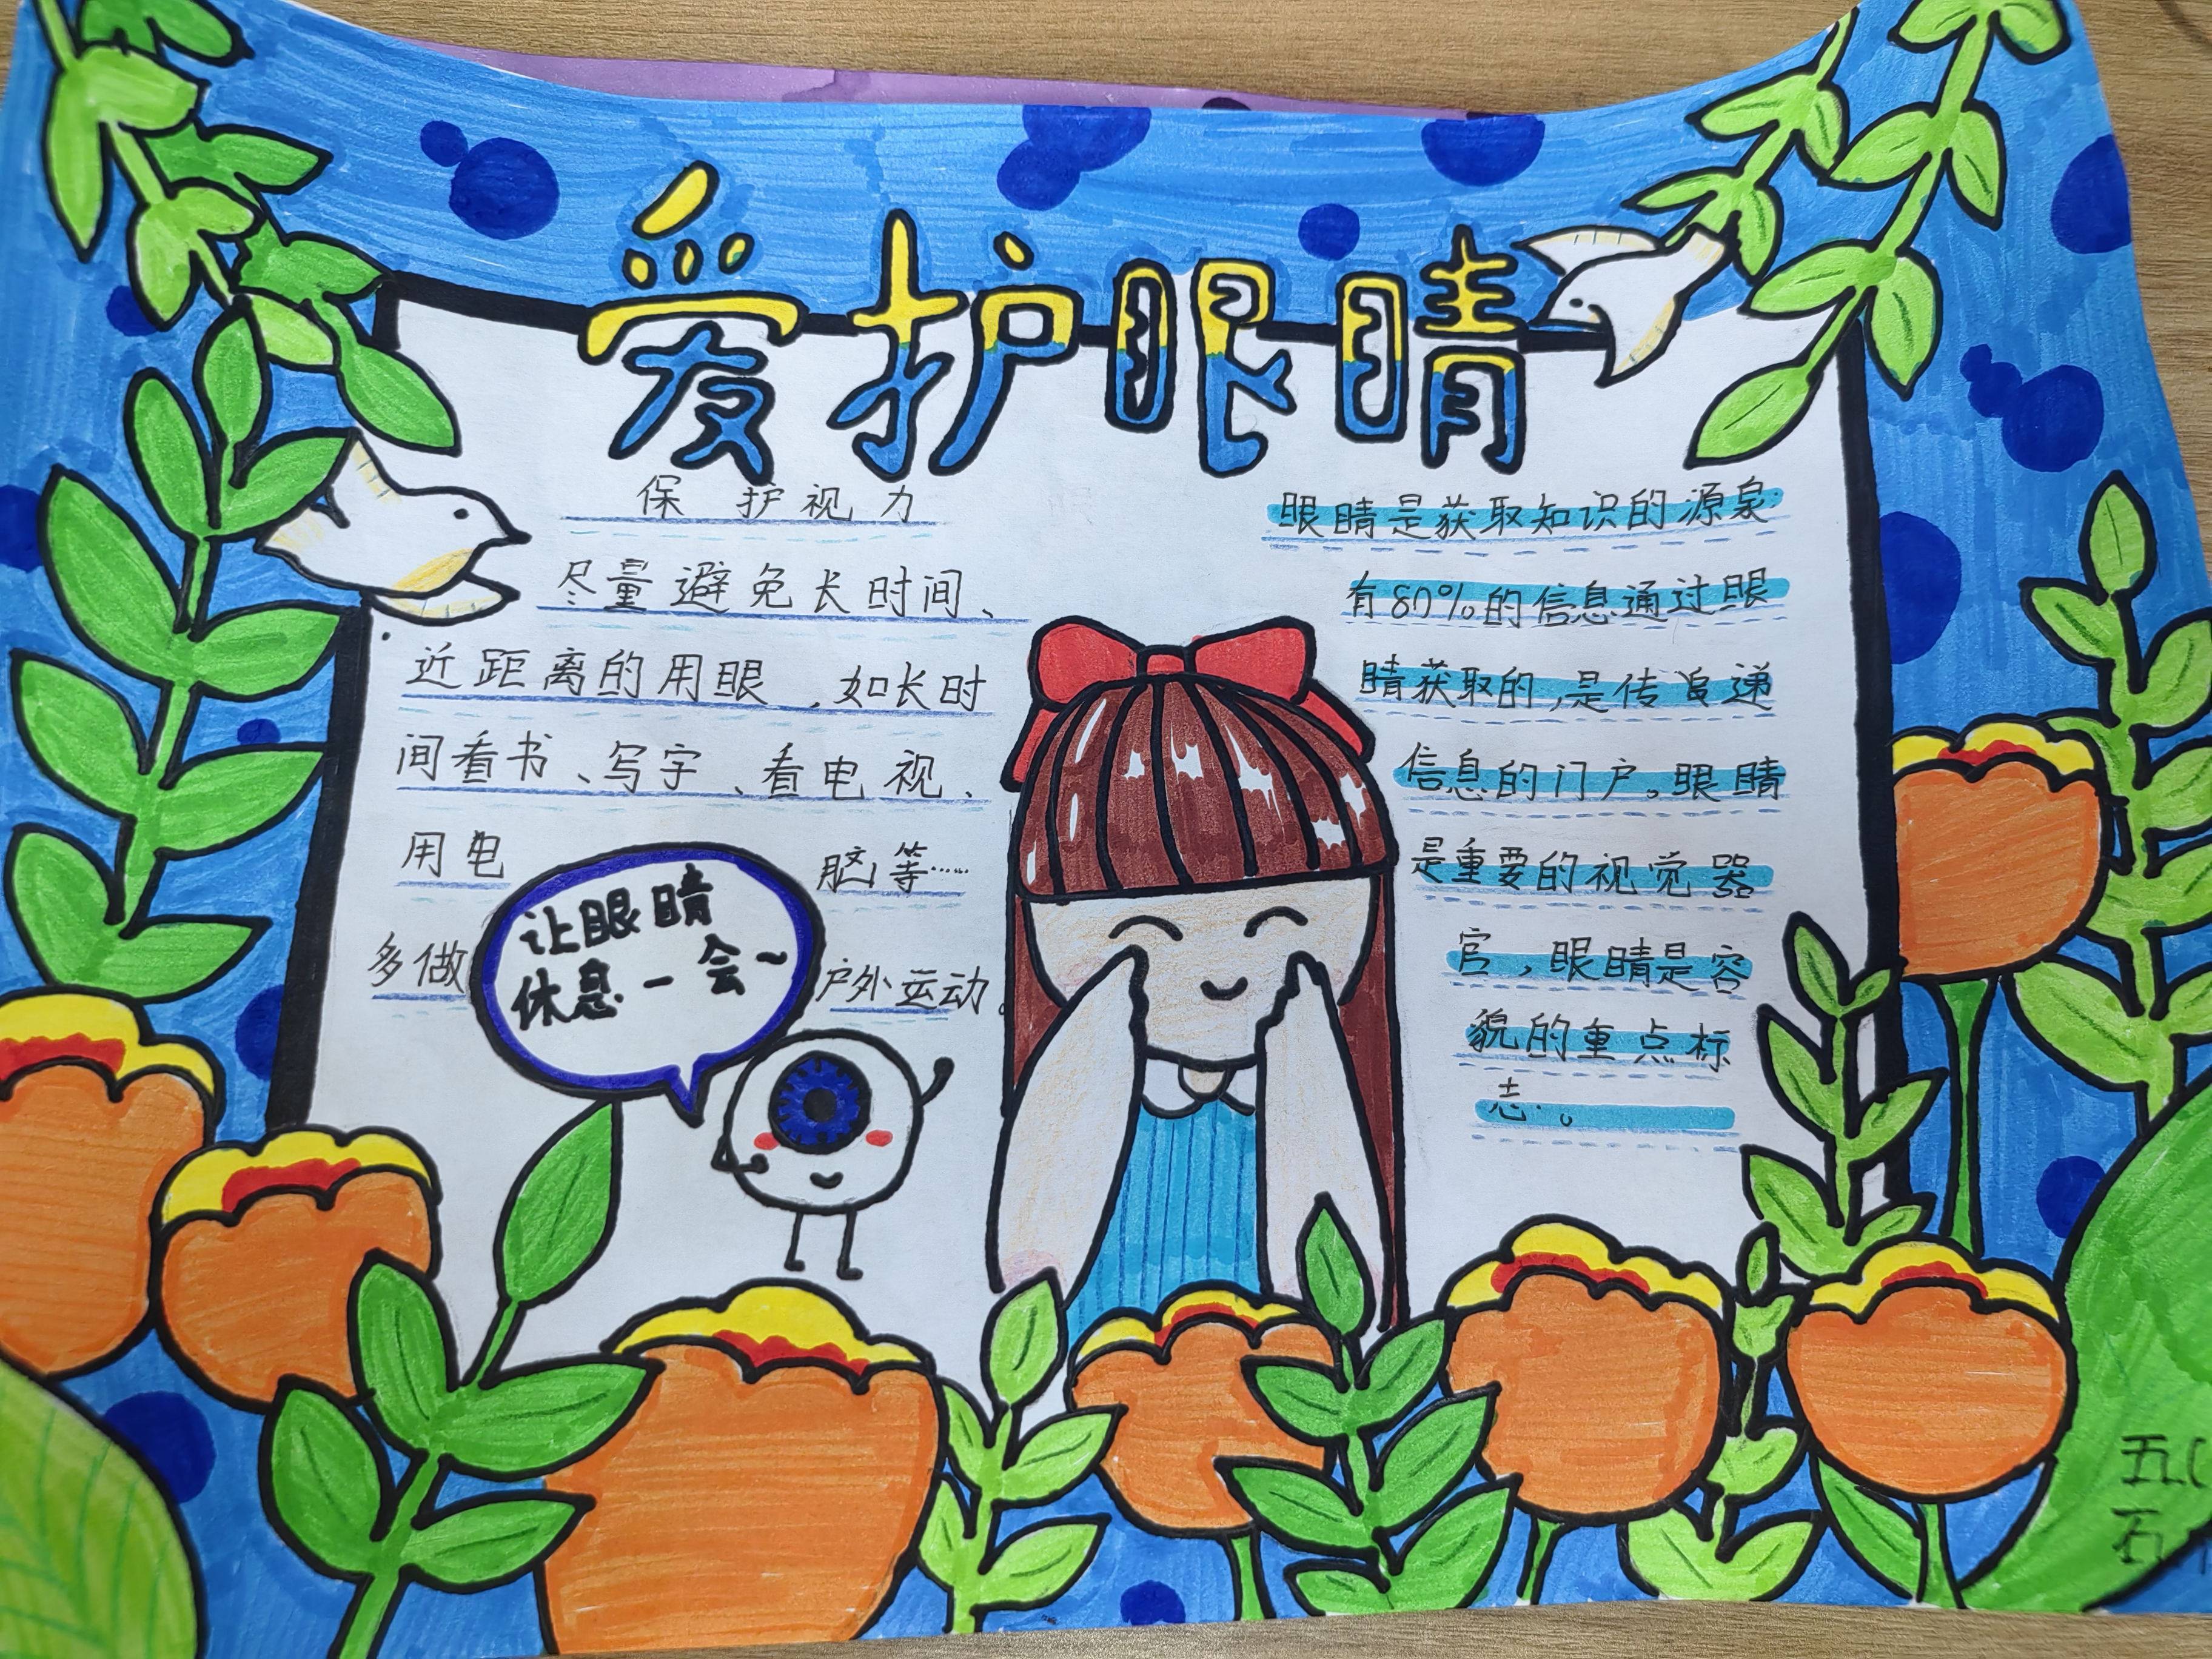 爱护眼睛
保护视力
尽量避免长时间、
近距离的用眼,如长时
间看书、写字、看电视、
用电脑等……
多做户外运动。
让眼睛
休息一会~
眼睛是获取知识的源泉.
有80%的信息通过眼
睛获取的,是传递
信息的门户。眼睛
是重要的视觉器
官,眼睛是容
貌的重点标
志。
五
石